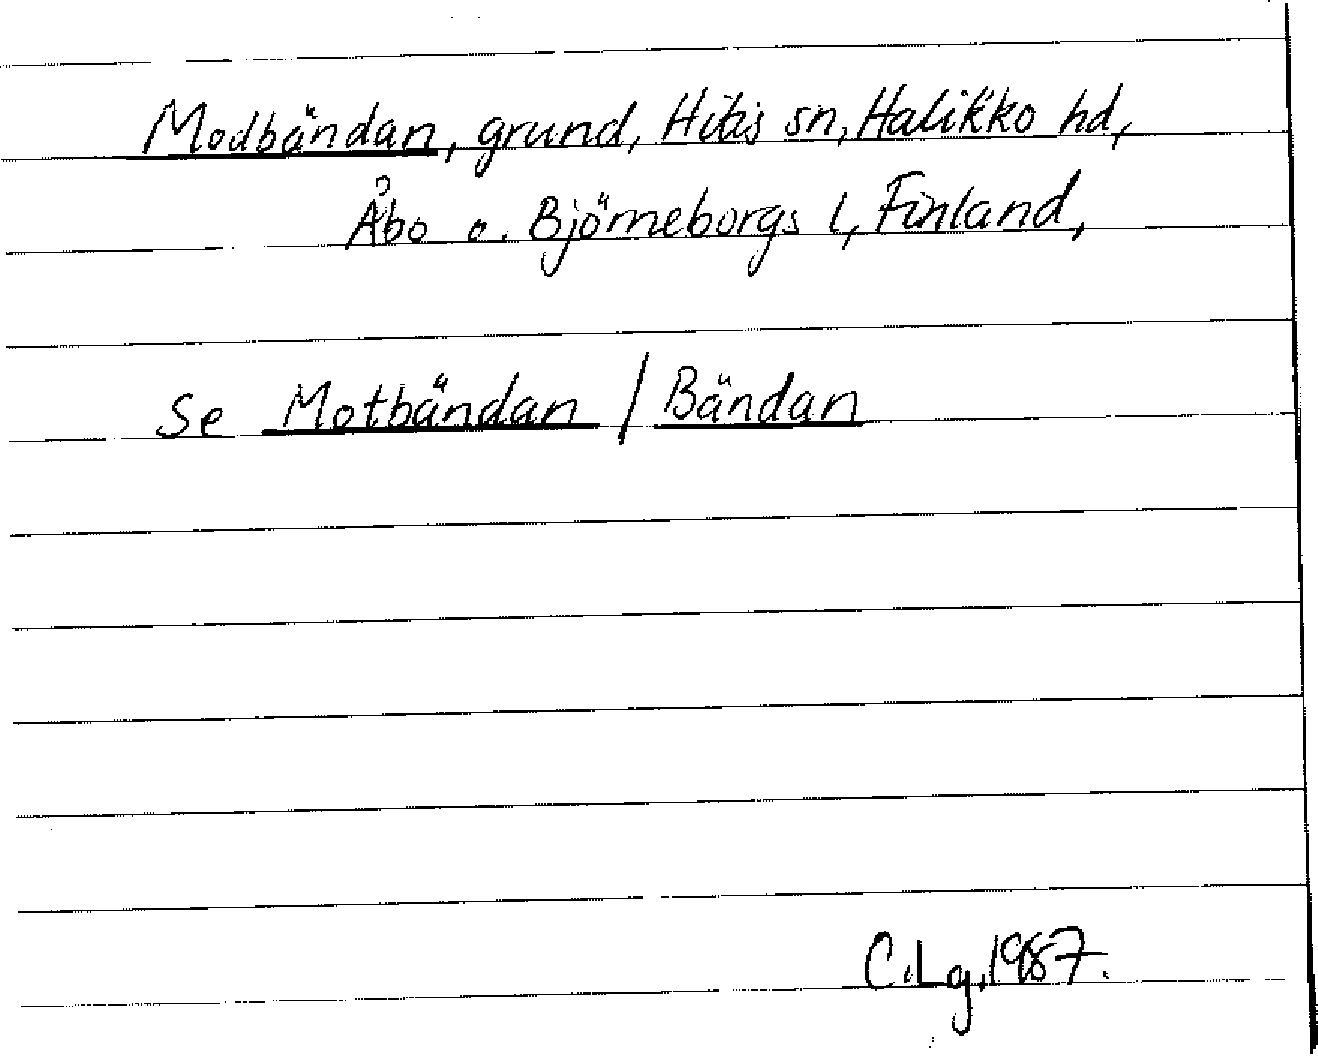 Modbändan, grund, Hitis sn, Halikko hd,
Åbo o. Björneborgs l, Finland,
Se Motbändan / Bändan
C.Lg, 1987.